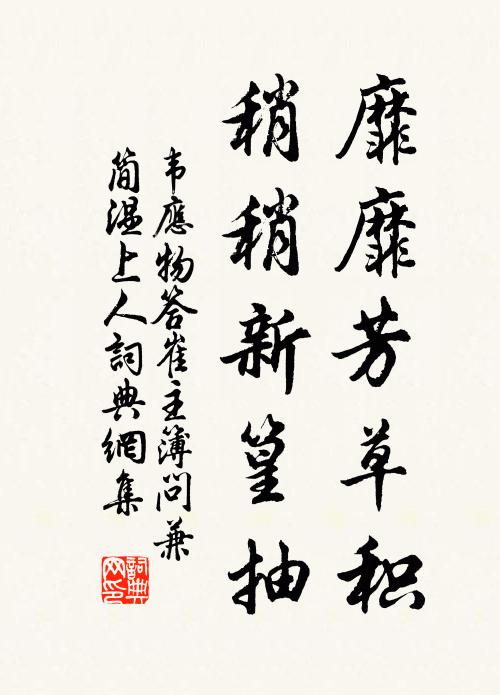 靡靡芳草积
稍稍新篁抽
韦應物答崔主簿问兼
简温上人詞典網集
詞典
网印